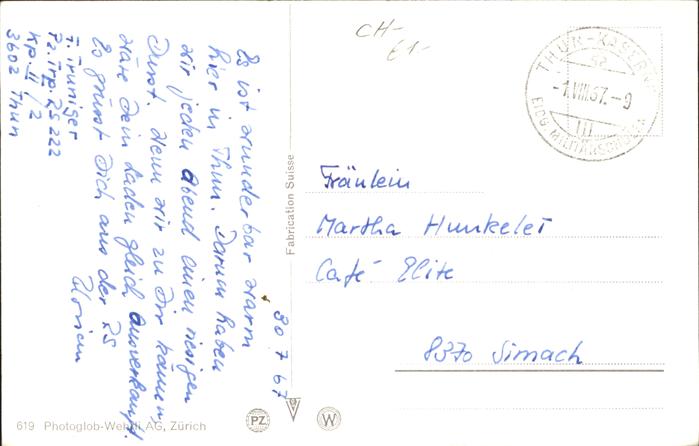 30 7 67
Es ist wunderbar warm
hier in Thun. Darum haben
wir jeden Abend einen riesigen
Durst. Wenn wir zu Dir kämen,
wäre Dein Laden gleich ausverkauft.
Es grüsst Dich aus der RS
F. Truniger
Pz. Trp. RS 222
Kp. II / 2
3602 Thun
Fabrication Suisse
CH-
61-
THUN-KASERNE
-1.VIII.67.-9
III
EIDG. MILITÄRSCHULEN
Fräulein
Martha Hunkeler
Café Elite
8370 Sirnach
619 Photoglob-Wehrli AG, Zürich
PZ
V
W